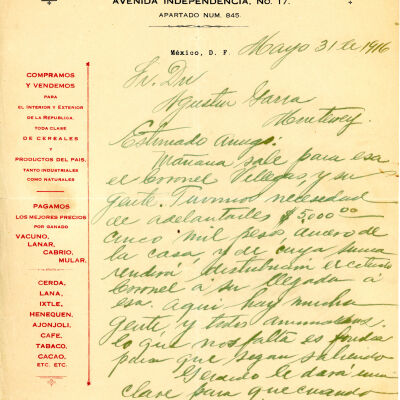 AVENIDA INDEPENDENCIA, No. 17.
APARTADO NUM. 845.
México, D. F. Mayo 31 de 1916
COMPRAMOS
Y VENDEMOS
PARA
EL INTERIOR Y EXTERIOR
DE LA REPUBLICA,
TODA CLASE
DE CEREALES
Y
PRODUCTOS DEL PAIS,
TANTO INDUSTRIALES
COMO NATURALES
PAGAMOS
LOS MEJORES PRECIOS
POR GANADO
VACUNO,
LANAR,
CABRIO,
MULAR,
CERDA,
LANA,
IXTLE,
HENEQUEN,
AJONJOLI,
CAFE,
TABACO,
CACAO,
ETC. ETC.
Sr. Dr
Agustin Garza
Monterrey
Estimado Amigo.
Mañana sale para esa
el Coronel Villegas, y su
gente. Tuvimos necesidad
de adelantarles $5,000 00
cinco mil pesos, de
la casa, y de cuya suma
rendirá distribucion el citado
Coronel á su llegada á
esa. Aqui hay mucha
gente, y todos
lo que nos falta es fondos
para que sigan saliendo
Gerardo le dará una
clave para que cuando